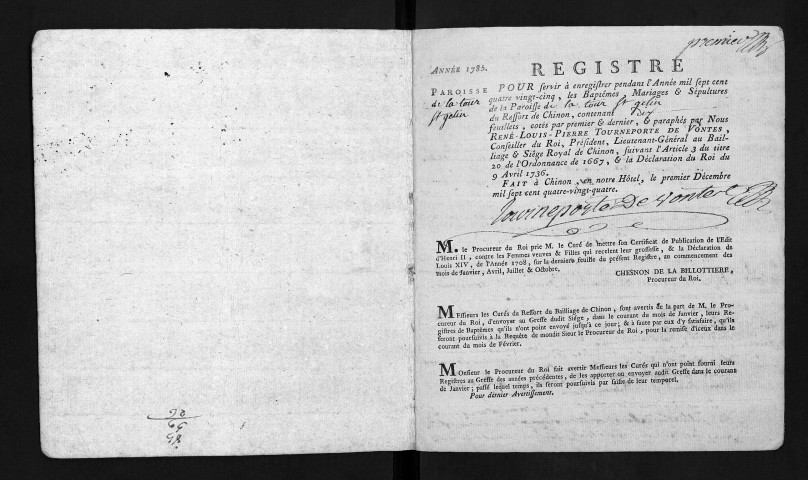 premier
ANNÉE 1785.
REGISTRE
PAROISSE
de la tour
st gelin
POUR servir à enregistrer pendant l'Année mil sept cent
quatre vingt-cinq, les Baptêmes, Mariages & Sépultures
de la Paroisse de la tour st gelin
du Ressort de Chinon, contenant dix
feuillets, cotés par premier & dernier, & paraphés par Nous
RENÉ-LOUIS-PIERRE TOURNEPORTE DE VONTES,
Conseiller du Roi, Président, Lieutenant-Général au Bail-
liage & Siége Royal de Chinon, suivant l'Article 3 du titre
20 de l'Ordonnance de 1667, & la Déclaration du Roi du
9 Avril 1736.
FAIT à Chinon, en notre Hôtel, le premier Décembre
mil sept cent quatre-vingt-quatre.
Tourneporte De Vontes
M. le Procureur du Roi prie M. le Curé de mettre son Certificat de Publication de l'Edit
d'Henri II, contre les Femmes veuves & Filles qui recelent leur grossesse, & la Déclaration de
Louis XIV, de l'Année 1708, sur la derniere feuille du présent Registre, au commencement des
mois de Janvier, Avril, Juillet & Octobre.
CHESNON DE LA BILLOTTIERE,
Procureur du Roi.
MEssieurs les Curés du Ressort du Bailliage de Chinon, sont avertis de la part de M. le Pro-
cureur du Roi, d'envoyer au Greffe dudit Siége, dans le courant du mois de Janvier, leurs Re-
gistres de Baptêmes qu'ils n'ont point envoyé jusqu'à ce jour; & à faute par eux d'y satisfaire, qu'ils
seront poursuivis à la Requête de mondit Sieur le Procureur du Roi, pour la remise d'iceux dans le
courant du mois de Février.
MOnsieur le Procureur du Roi fait avertir Messieurs les Curés qui n'ont point fourni leurs
Registres au Greffe des années précédentes, de les apporter ou envoyer audit Greffe dans le courant
de Janvier; passé lequel temps, ils seront poursuivis par saisie de leur temporel.
Pour dernier Avertissement.